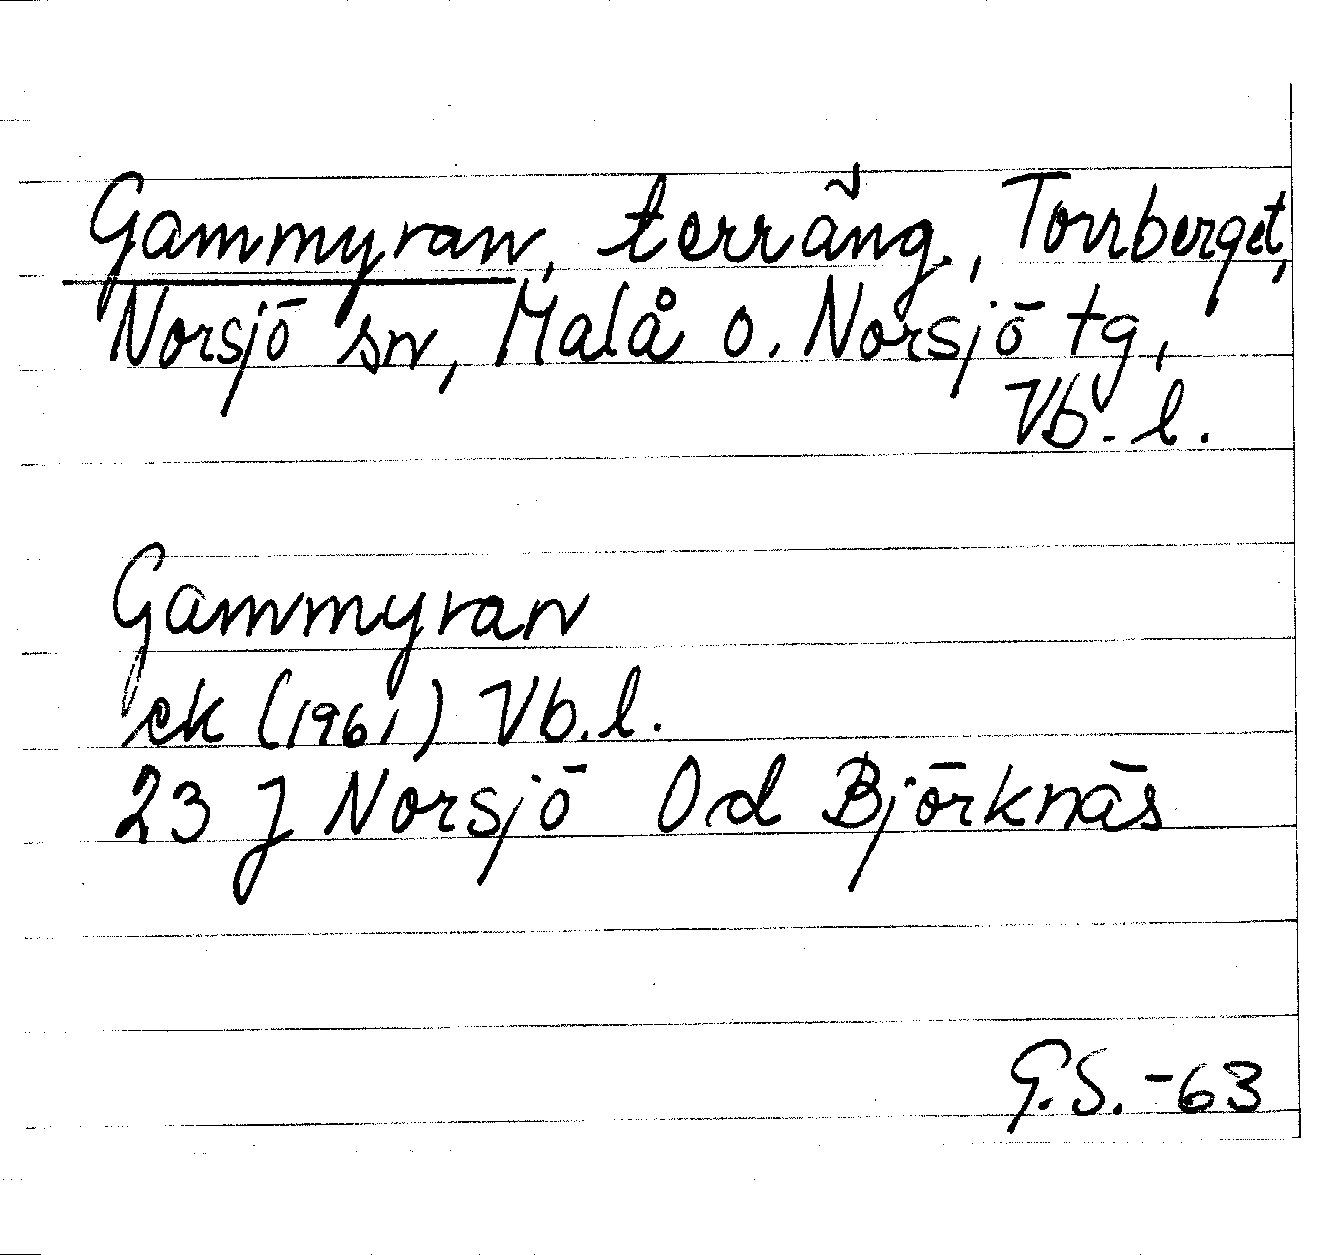 Gammyran, terräng, Torrberget,
Norsjö sn, Malå o. Norsjö tg,
Vb. l.
Gammyran
ek (1961) Vb. l.
23 J Norsjö Od Björknäs
G.S. -63